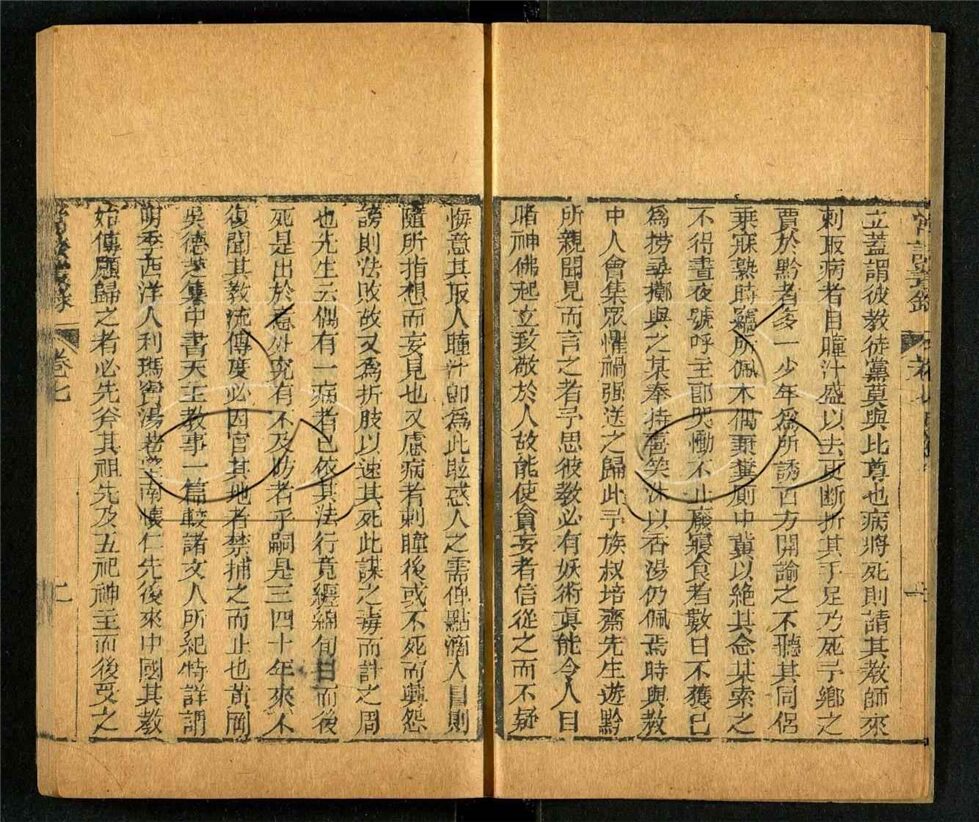 立蓋謂彼教徒黨莫與比尊也病將死則請其教師來
刺取病者目瞳汁盛以去更斷折其手足乃死予鄉之
賈於黔者多一少年為所誘百方開諭之不聽其同侶
乘寐熟時竊所佩木偶棄糞厠中冀以絕其念某索之
不得晝夜號呼主郎哭慟不止廢寢食若數日不獲已
為撈尋擲與之某奉持喜笑沐以香湯仍佩焉時與教
中人會集眾懼禍强送之歸此予族叔培齋先生遊黔
所親聞見而言之者予思彼教必有妖術眞能令人目
睹神佛起立致敬於人故能使貪妄者信從之而不疑
悔意其取人瞳汁即為此眩惑人之需俾點滴人目則
隨所指想而妄見也又慮病者刺瞳後或不死而興怨
謗則法敗故又為折肢以速其死此謀之毒而計之周
也先生云偶有一病者已依其法行竟纏綿旬日而後
死是出於意外究有不及防者乎嗣是三四十年來不
復聞其教流傳度必因官其地者禁捕之而止也黃岡
吳德芝集中書天主教事一篇較諸文人所紀特詳謂
明季西洋人利瑪竇湯若望南懷仁先後來中國其教
始傳願歸之者必先斧其祖先及五祀神主而後受之
卷七